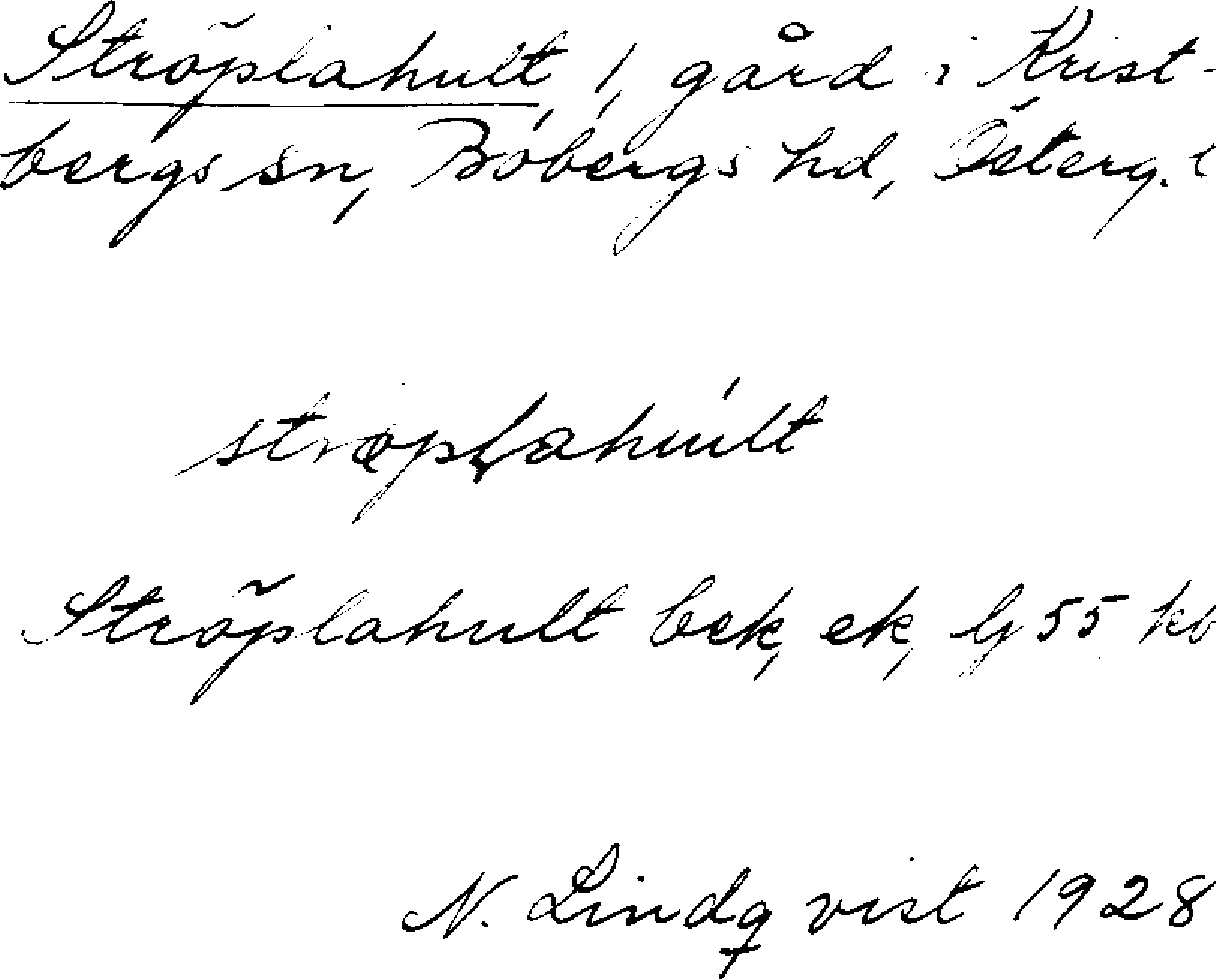 Ströplahult, 1, gård i Krist-
bergs sn, Bobergs hd, Österg. l
strøplahult
Ströplahult bek, ek, lj 55 kb
N. Lindqvist 1928